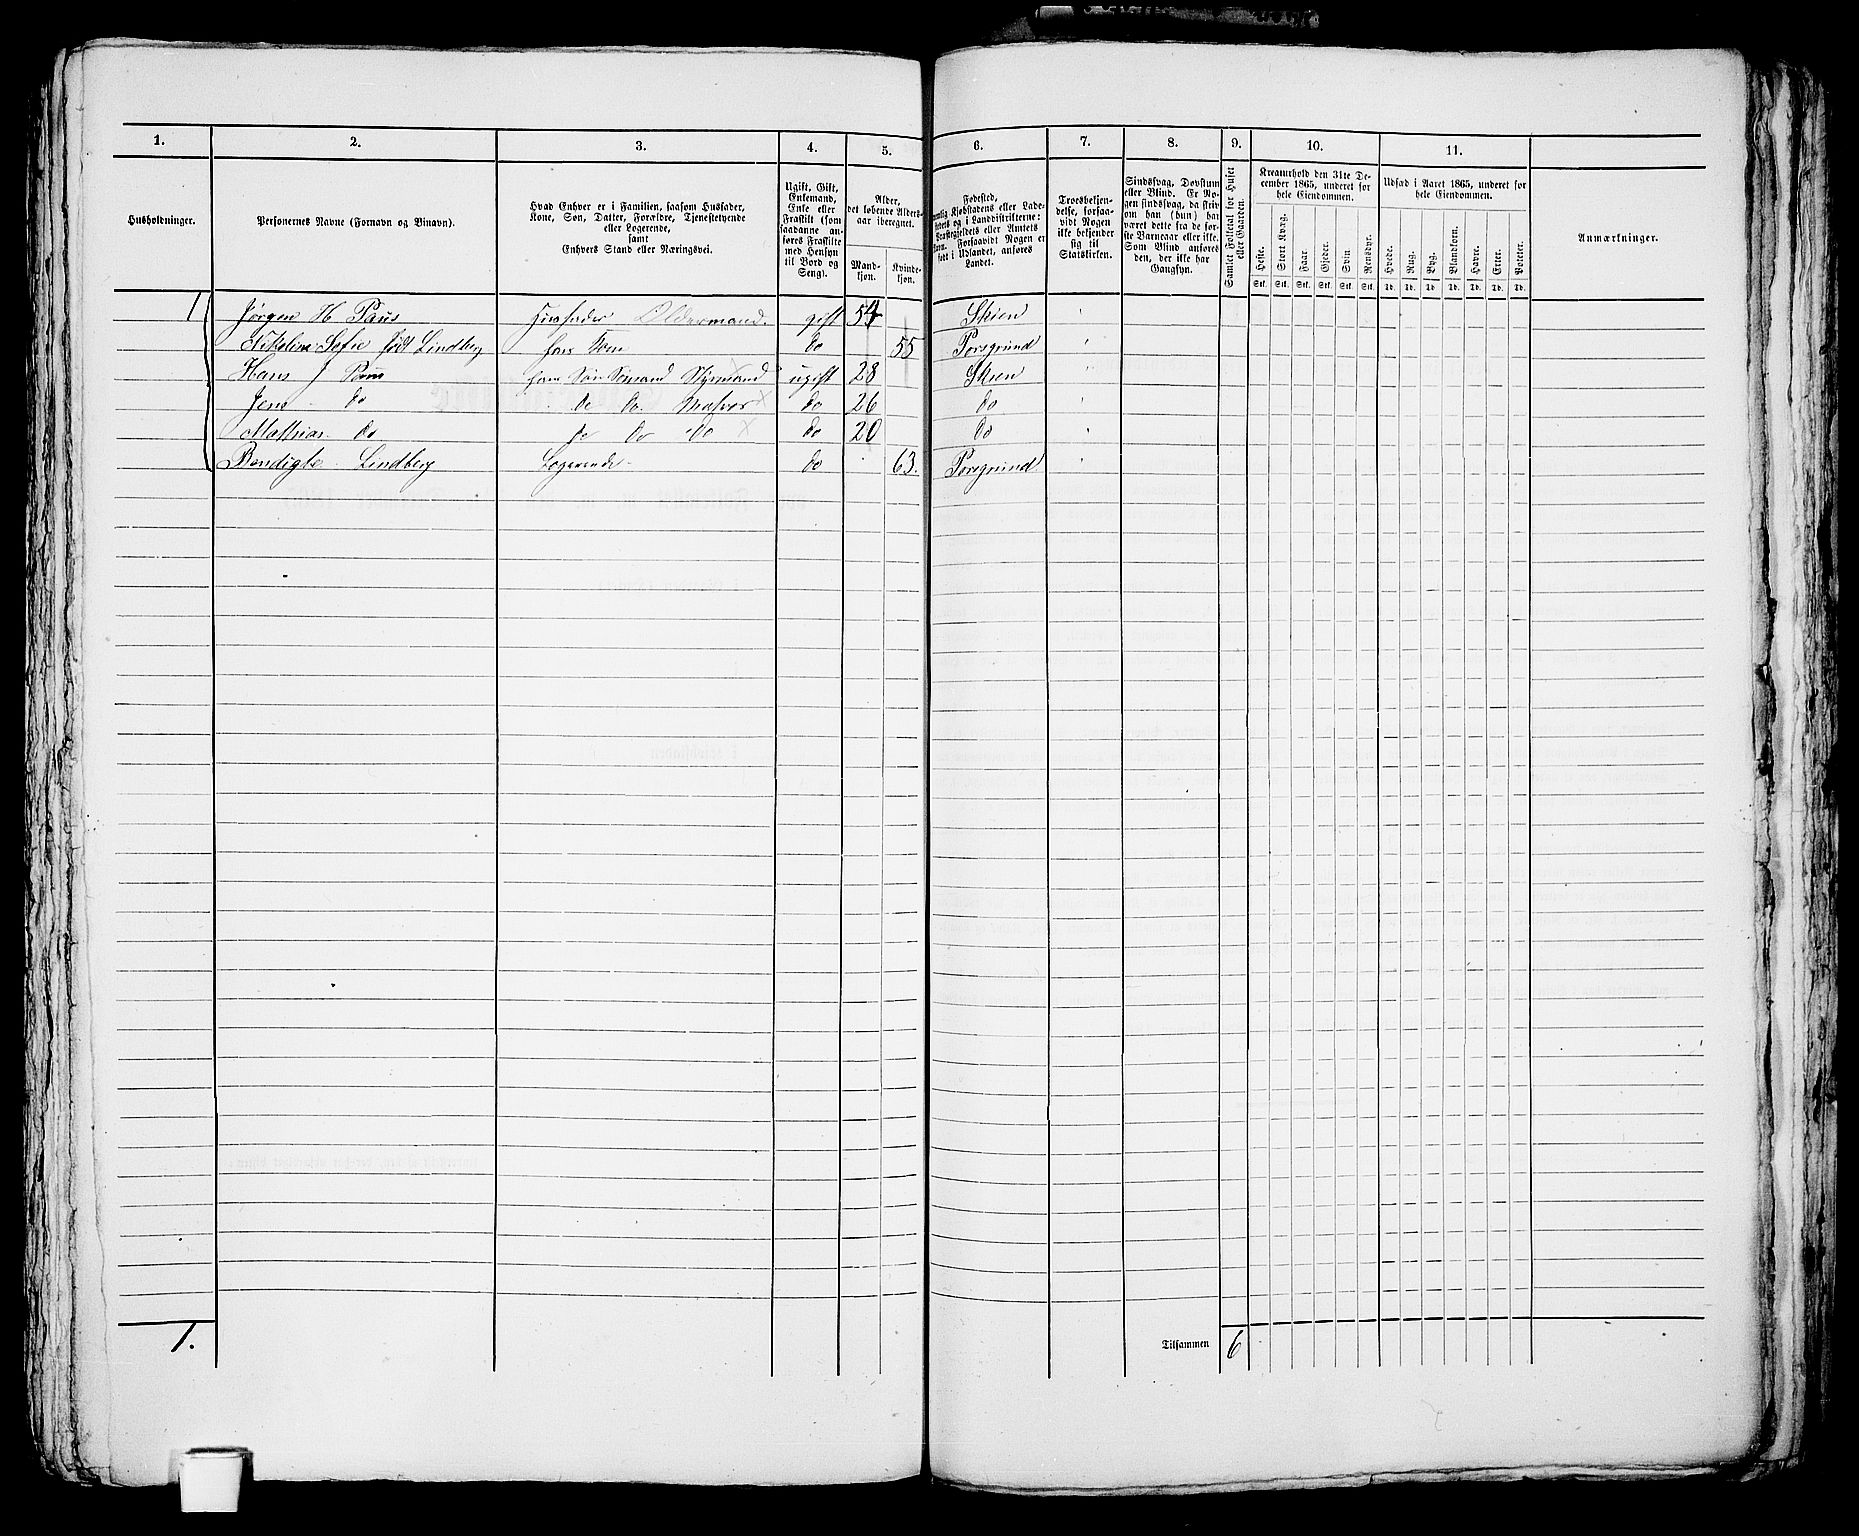 1. 2. 3. 4. 5. 6. 7. 8. 9. 10. 11.
Husholdninger.
Personernes Navne (Fornavn og Binavn).
Hvad Enhver er i Familien, saasom Husfader,
Kone, Søn, Datter, Forældre, Tjenestetyende
eller Logerende,
samt
Enhvers Stand eller Næringsvei.
Ugift, Gift,
Enkemand,
Enke eller
Fraskilt (som
saadanne an-
føres Fraskilte
med Hensyn
til Bord og
Seng).
Alder,
det løbende Alders-
aar iberegnet.
Mand-
kjøn.
Kvinde-
kjøn.
Fødested,
nemlig Kjøbstadens eller Lade-
stedets og i Landdistrikterne:
Præstegjeldets eller Amtets
Navn. Forsaavidt Nogen er
født i Udlandet, anføres
Landet.
Troesbekjen-
delse, forsaa-
vidt Nogen
ikke bekjender
sig til
Statskirken.
Sindssvag, Døvstum
eller Blind. Er No-
gen sindssvag, da skriv
om han (hun) har
været dette fra de før-
ste Barneaar eller ikke.
Som Blind anføres
den, der ikke har
Gangsyn.
Samlet Folketal for Huset
eller Gaarden.
Kreaturhold den 31te De-
cember 1865, underet for
hele Eiendommen.
Heste. Stort Kvæg. Faar. Gjeder. Svin Rensdyr.
Stk. Stk. Stk. Stk. Stk. Stk.
Udsæd i Aaret 1865, underet for
hele Eiendommen.
Hvede. Rug. Byg. Blandkorn. Havre. Erter. Poteter.
Td. Td. Td. Td. Td. Td. Td.
Anmærkninger.
1 Jørgen H Paus Huusfader Oldermand. gift 54 Skien
Nikoline Sofie født Lindberg hans Kone do 55 Porsgrund
Hans J Paus hans Søn Sømand Styrmand ugift 28 Skien
Jens do do do Matros do 26 do
Mathias do do do do do 20 do
Bendigte Lindberg Logerende do 63. Porsgrund
1. Tilsammen 6